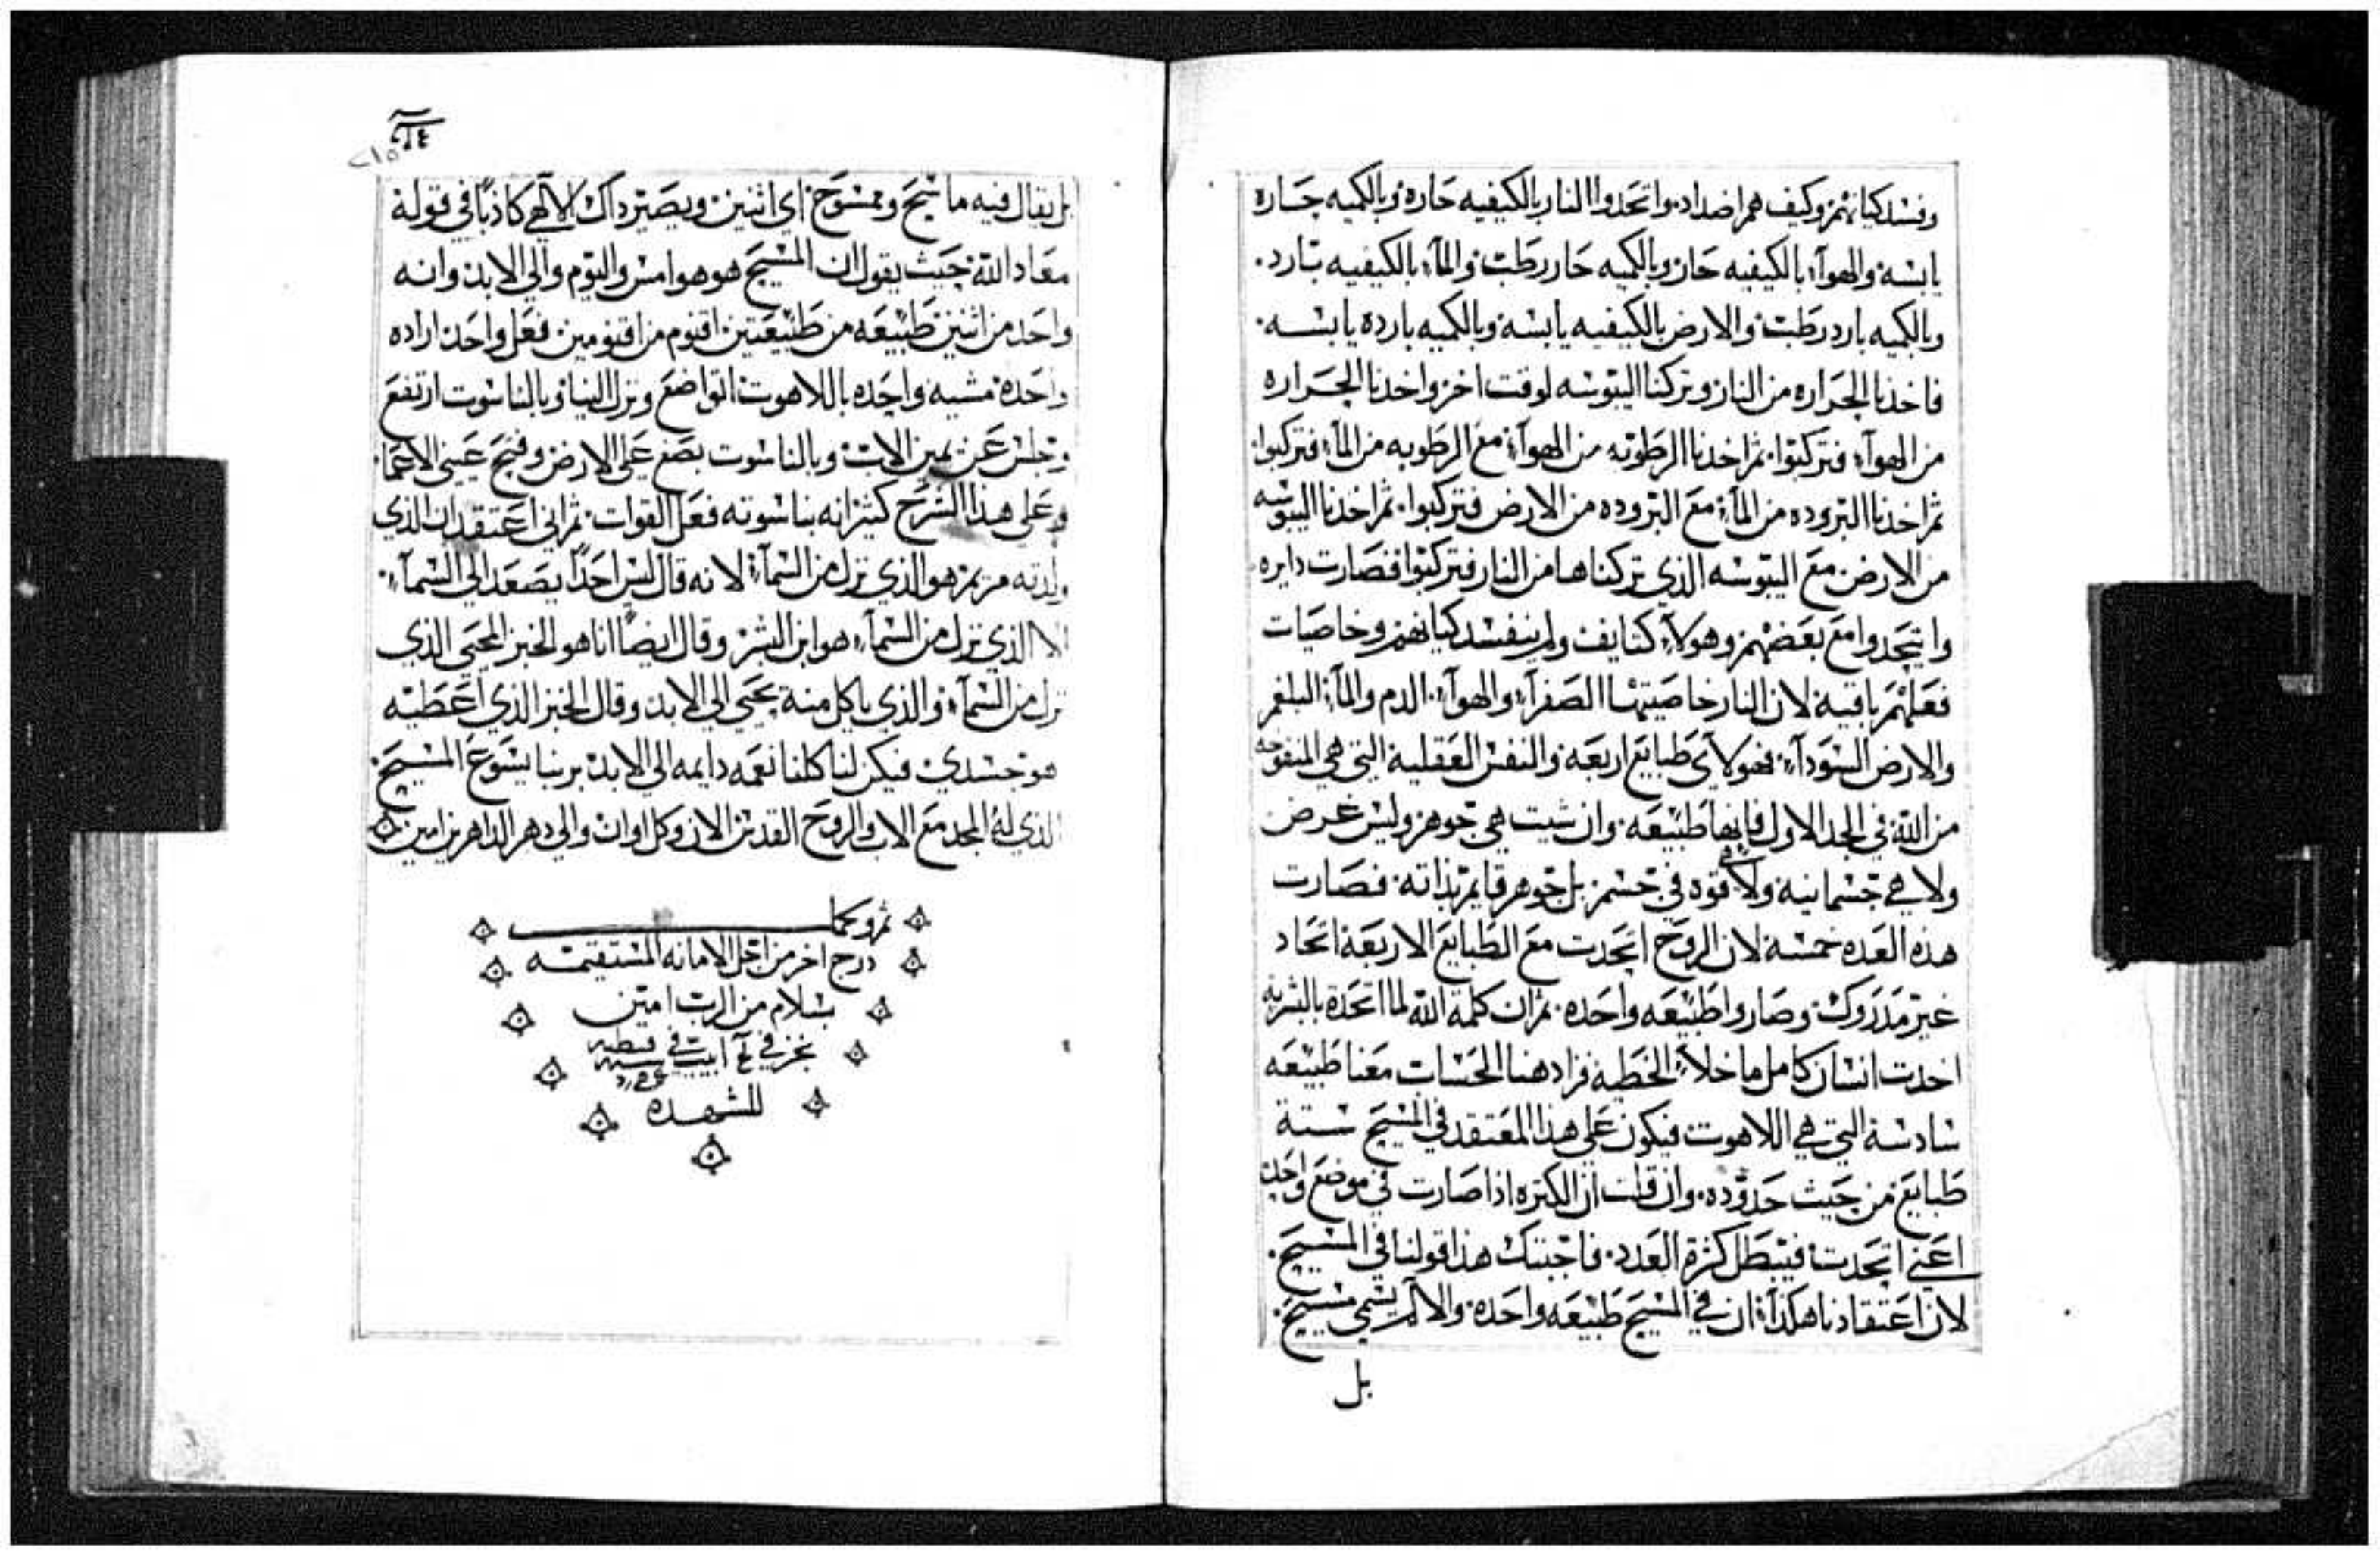 وفسد كيانهم وكيف هم اضداد، واتحدوا النار بالكيفيه حاره وبالكميه حاره
يابسه والهوآء بالكيفيه حار وبالكميه حار رطب والمآء بالكيفيه بارد.
وبالكميه بارد رطب والارض بالكيفيه يابسه وبالكميه بارده يابسه.
فاخدنا الحراره من النار وتركنا اليبوسه لوقت اخر واخدنا الحراره
من الهوآء فتركبوا. ثم اخدنا الرطوبه من الهوآء مع الرطوبه من المآء فتركبوا.
ثم اخدنا البروده من المآء مع البروده من الارض فتركبوا. ثم اخدنا اليبوسه
من الارض مع اليبوسه الذي تركناها من النار فتركبوا فصارت دايره
واتحدوا مع بعضهم وهولآء كتايف ولم ينفسد كيانهم وخاصيات
فعلهم باقية لان النار خاصيتها الصفرآء والهوآء الدم والمآء البلغم
والارض السودآء فهولآي طبايع اربعه والنفس العقلية التي هي المنفوخه
من الله في الجد الاول فانها طبيعه وان شيت هي جوهر وليس غرض
ولا هي جسمانية ولا هي قوه في جسم بل جوهر قايم بذاته. فصارت
هذه العده خمسة لان الروح اتحدت مع الطبايع الاربعة اتحاد
غير مدروك وصاروا طبيعه واحده. ثم ان كلمة الله لما اتحدة بالبشريه
اخدت انسان كامل ما خلا الخطيه فزاد هنا الحسات معنا طبيعه
سادسة التي هي اللاهوت فيكون على هذا المعتقد في المسيح ستة
طبايع من حيث حدوده. وان قلت ان الكتره اذا صارت في موضع واحد
اعني اتحدت فيبطل كثرة العدد. فاجبتك هذا قولنا في المسيح.
لان اعتقادنا هكذا ان في المسيح طبيعه واحده والا لم يسمي مسيح.
بل
٢١٥
بل يقال فيه ماسح وممسوح اي اثنين ويصير داك الالهي كاذبًا في قولة
معاد الله حيث يقول ان المسيح هو هو امس واليوم والي الابد وانه
واحد من اثنين طبيعه من طبيعتين اقنوم من اقنومين فعل واحد اراده
واحدة مشيه واحده باللاهوت اتواضع ونزل الينا وبالناسوت ارتفع
وجلس عن يمين الاب وبالناسوت بصق علي الارض وفتح عيني الاعما
وعلى هذا الشرح كثير انه بناسوته فعل القوات. ثم اني اعتقد ان الذي
ولدته مريم هو الذي نزل من السمآء لانه قال ليس احدًا يصعد الي السمآء
الا الذي نزل من السمآء هو ابن البشر وقال ايضًا انا هو الخبز المحيي الذي
نزل من السمآء والذي ياكل منة يحيي الي الابد وقال الخبز الذي اعطيه
هو جسدي فيكن لنا كلنا نعمه دايمه الي الابد بربنا يسوع المسيح
الذي لة المجد مع الاب والروح القدس الان وكل اوان والي دهر الداهرين امين
تم وكمل
درج اخر من اجل الامانه المستقيمه
بسلام من الرب امين
للشهده